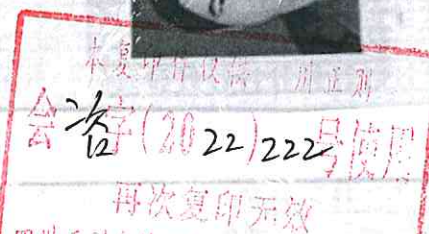 本复印件仅供 川益咨
会咨字(2022)222号使用
再次复印无效